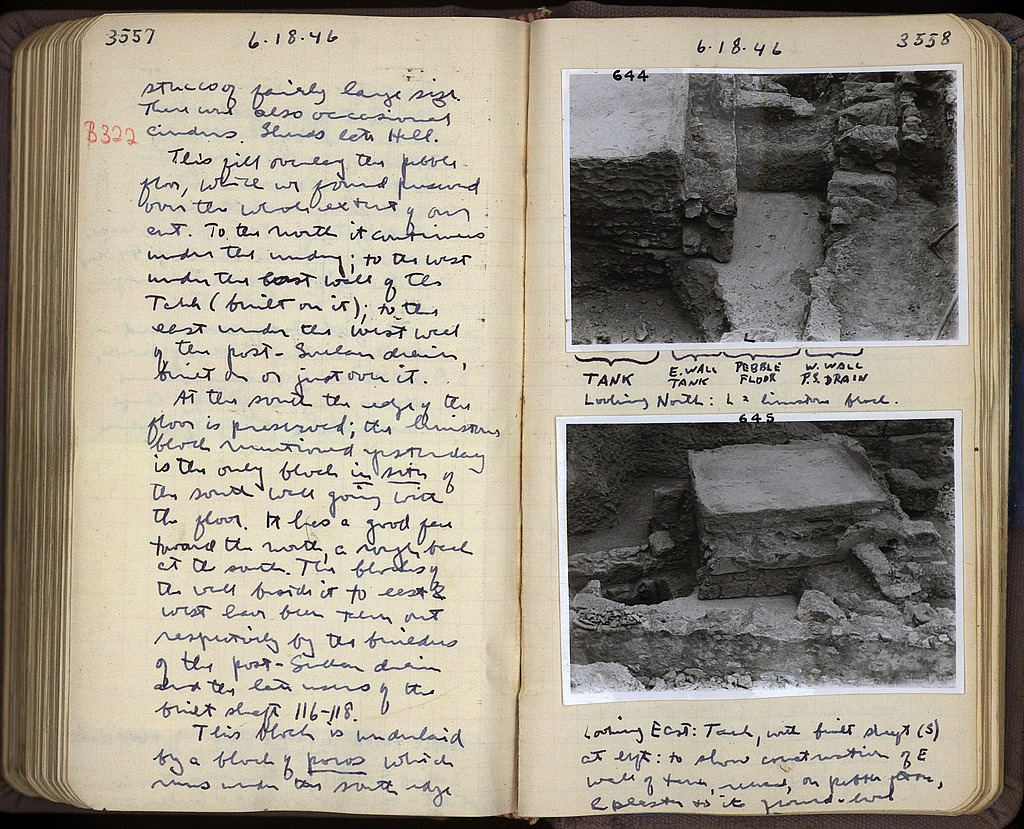 3557
6.18.46
stucco of fairly large size.
There were also occasional
B322
cinders. Sherds late Hell.
This fill overlay the pebble
floor, which we found preserved
over the whole extent of our
cut. To the north it continues
under the ; to the west
under the east wall of the
Tank (built on it); to the
east under the west wall
of the post-Sullan drain,
built on or just over it.
At the south the edge of the
floor is preserved; the limestone
block mentioned yesterday
is the only block in situ of
the south wall going with
the floor. It has a good face
toward the north, a rough back
at the south. The blocks of
the wall beside it to east &
west have been taken out
respectively by the builders
of the post-Sullan drain
and the late users of the
built shaft 116-118.
This block is underlaid
by a block of poros which
runs under the south edge
6.18.46
3558
644
L
TANK
E. WALL TANK
PEBBLE FLOOR
W. WALL P.S. DRAIN
Looking North: L = limestone block.
645
Looking East: Tank, with built shaft (S)
at left: to show construction of E
wall of tank, reused, on pebble floor,
& plaster to its ground-level